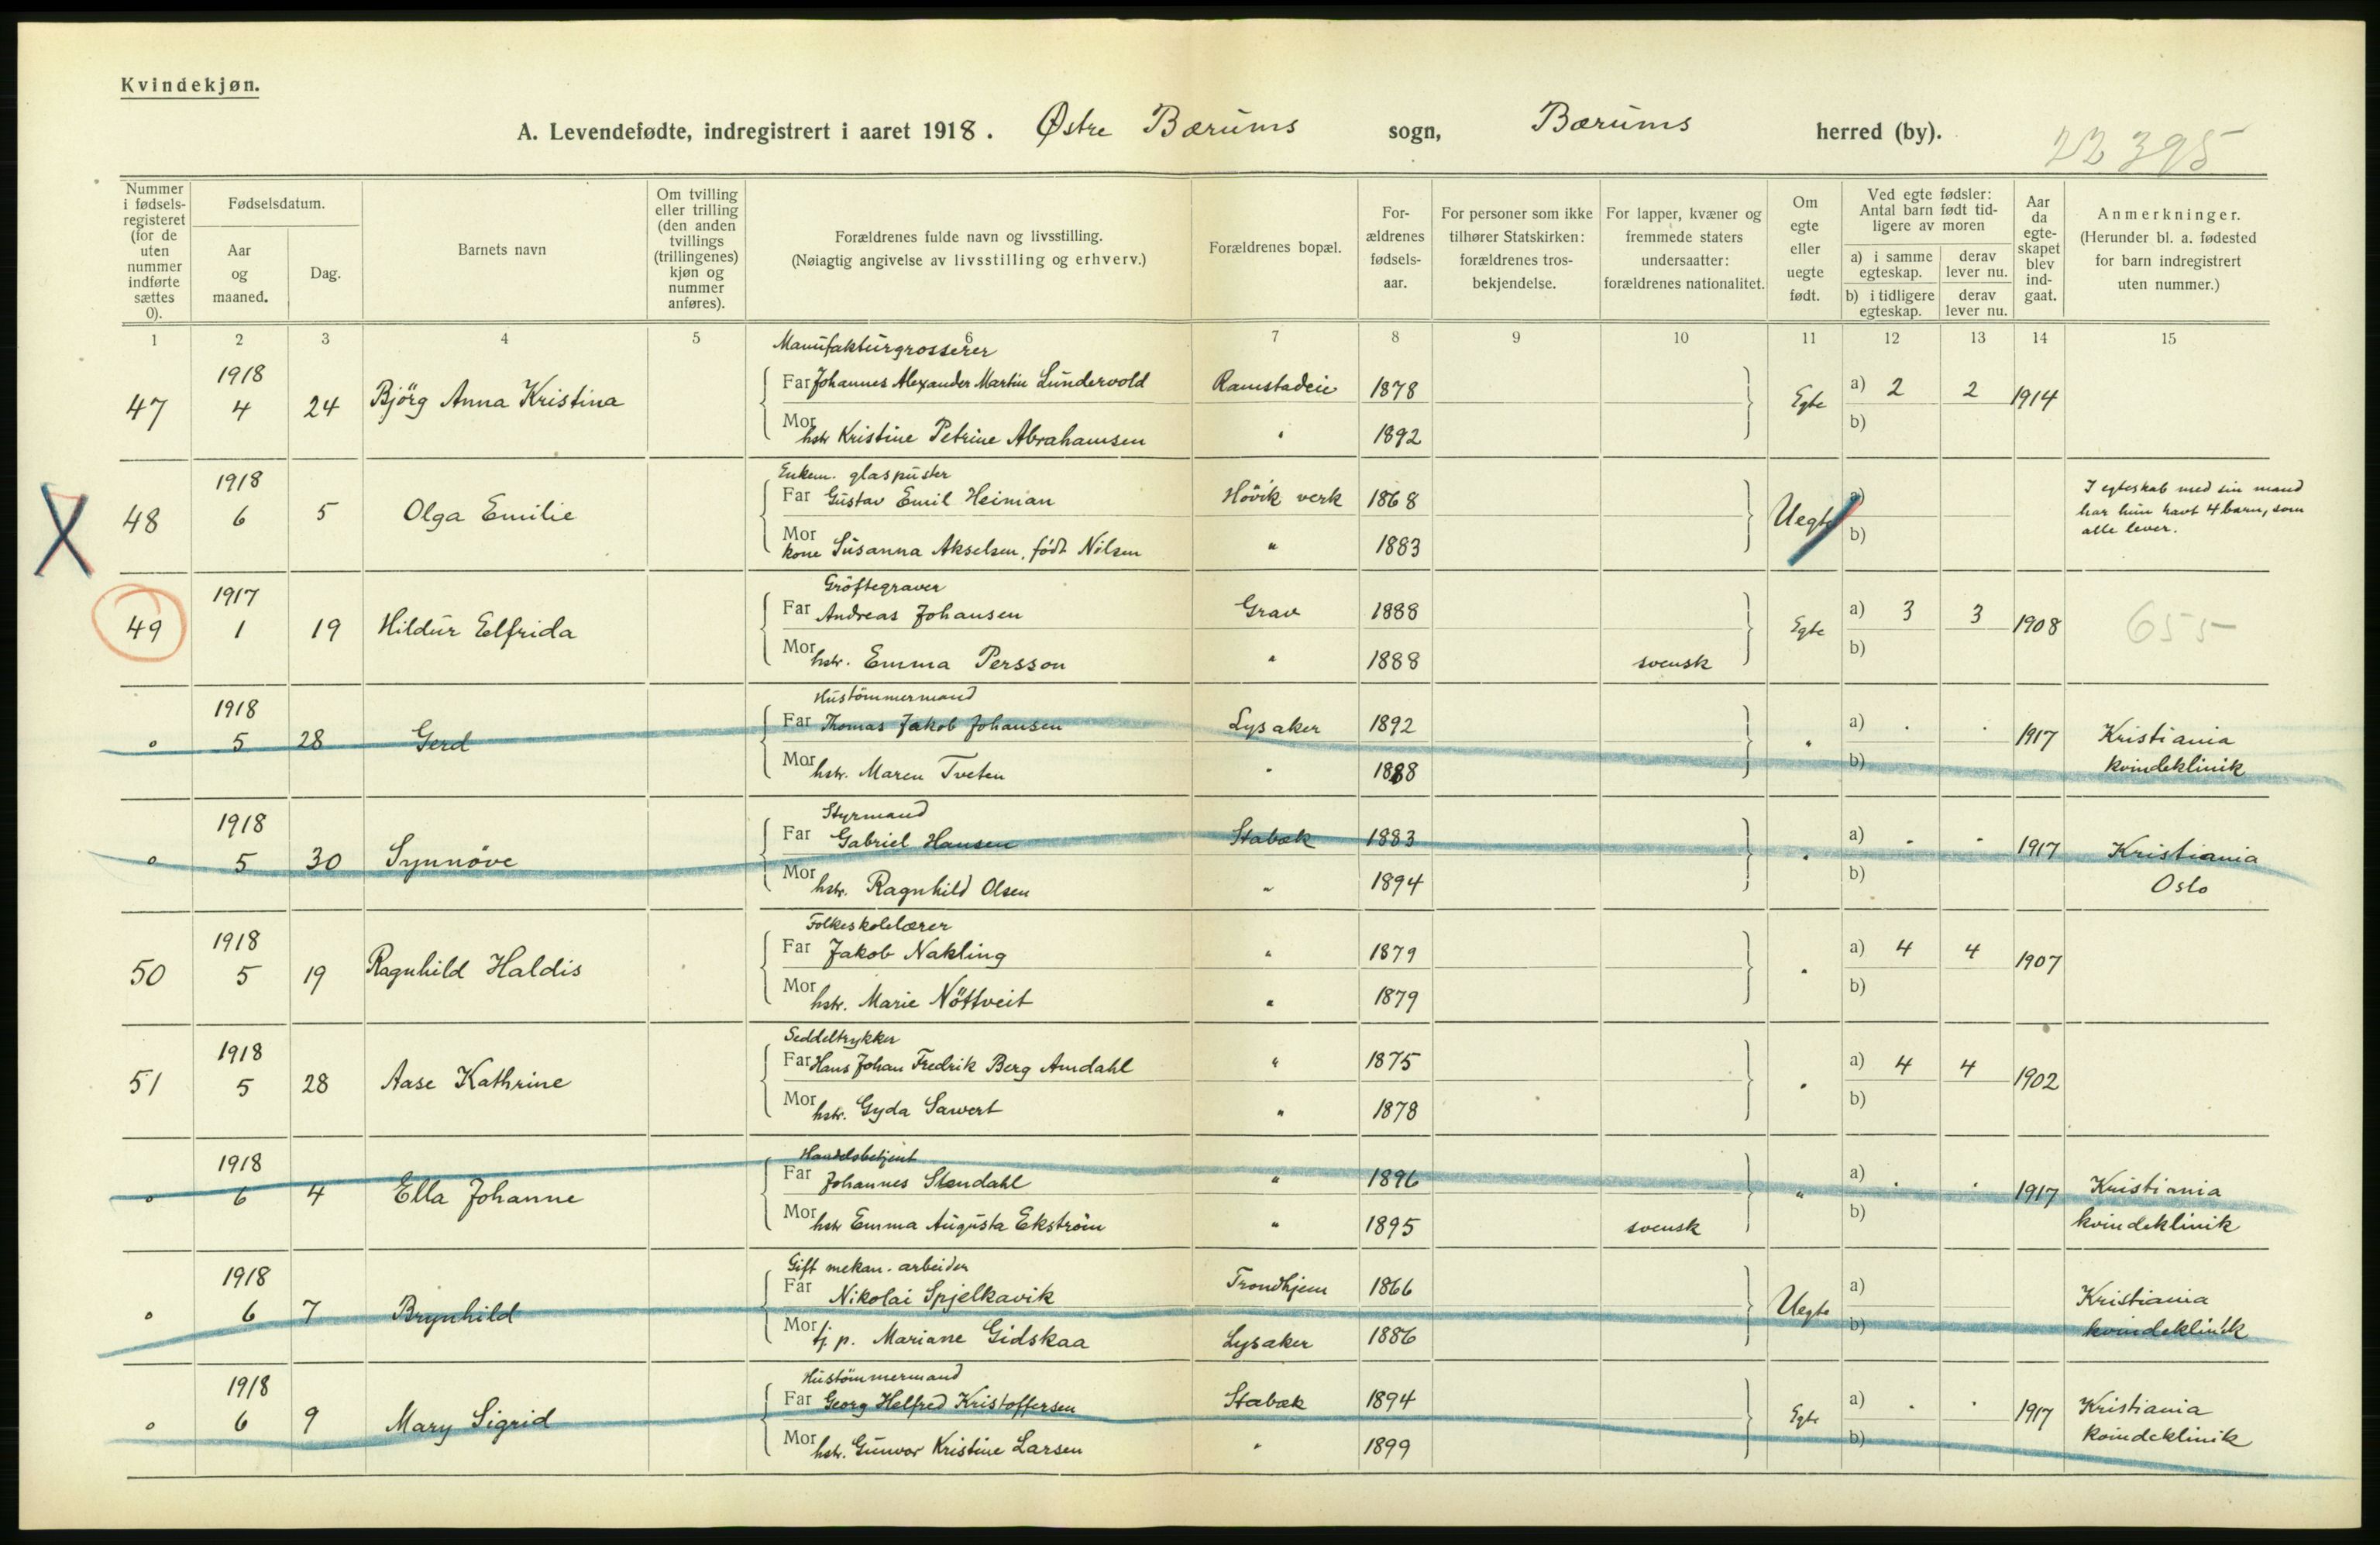 Kvindekjøn.
A. Levendefødte, indregistrert i aaret 1918. Østre Bærums sogn, Bærums herred (by).
22 395
Nummer i fødsels-registeret (for de uten nummer indførte sættes 0).
Fødselsdatum.
Aar og maaned.
Dag.
Barnets navn
Om tvilling eller trilling (den anden tvillings (trillingenes) kjøn og nummer anføres).
Forældrenes fulde navn og livsstilling.
(Nøiagtig angivelse av livsstilling og erhverv.)
Forældrenes bopæl.
For-ældrenes fødsels-aar.
For personer som ikke tilhører Statskirken: forældrenes tros-bekjendelse.
For lapper, kvæner og fremmede staters undersaatter: forældrenes nationalitet.
Om egte eller uegte født.
Ved egte fødsler: Antal barn født tid-ligere av moren
a) i samme egteskap. derav lever nu.
b) i tidligere egteskap. derav lever nu.
Aar da egte-skapet blev ind-gaat.
Anmerkninger.
(Herunder bl. a. fødested for barn indregistrert uten nummer.)
1 2 3 4 5 6 7 8 9 10 11 12 13 14 15
Manufakturgrosserer
1918
47 4 24 Björg Anna Kristina Far Johannes Alexander Martin Lundervold Ramstadeie 1878 Egte a) 2 2 1914
Mor hstr Kristine Petrine Abrahamsen " 1892 b)
Enkem. glaspuster
1918
48 6 5 Olga Emilie Far Gustav Emil Heiman Hövik verk 1868 Uegte a)
Mor kone Susanna Akselsen, födt Nilsen " 1883 b)
I egteskab med sin mand
har hun havt 4 barn, som
alle lever.
Gröftegraver
1917
49 1 19 Hildur Elfrida Far Andreas Johansen Grav 1888 Egte a) 3 3 1908 655
Mor hstr. Emma Persson " 1888 svensk b)
Hustömmermand
1918
0 5 28 Gerd Far Thomas Jakob Johansen Lysaker 1892 " a) . . 1917 Kristiania
Mor hstr. Maren Tveten " 1888 b) kvindeklinik
Styrmand
1918
0 5 30 Synnöve Far Gabriel Hansen Stabæk 1883 " a) . . 1917 Kristiania
Mor hstr. Ragnhild Olsen " 1894 b) Oslo
Folkeskolelærer
1918
50 5 19 Ragnhild Haldis Far Jakob Nakling " 1879 " a) 4 4 1907
Mor hstr. Marie Nöttveit " 1879 b)
Seddeltrykker
1918
51 5 28 Aase Kathrine Far Hans Johan Fredrik Berg Amdahl " 1875 " a) 4 4 1902
Mor hstr. Gyda Sawert " 1878 b)
Handelsbetjent
1918
0 6 4 Ella Johanne Far Johannes Stendahl " 1896 " a) . . 1917 Kristiania
Mor hstr Emma Augusta Ekström " 1895 svensk b) kvindeklinik
Gift mekan. arbeider
1918
0 6 7 Brynhild Far Nikolai Spjelkavik Trondhjem 1866 Uegte a) Kristiania
Mor tj. p. Mariane Gidskaa Lysaker 1886 b) kvindeklinik
Hustömmermand
1918
0 6 9 Mary Sigrid Far Georg Helfred Kristoffersen Stabæk 1894 Egte a) . . 1917 Kristiania
Mor hstr. Gunvor Kristine Larsen " 1899 b) kvindeklinik